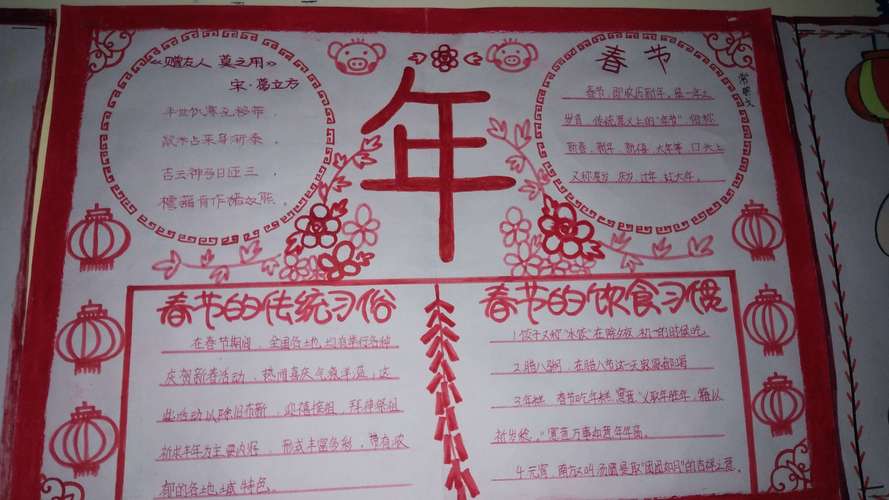 《赠友人 莫之用》
宋·葛立方
半世饥寒
吉云神马日匝三
年
春节
春节，即农历新年，是一年之
岁首，传统意义上的“年节”俗称
新春、新年、新禧、大年等，口头上
又称度岁、庆岁、过年、过大年。
春节的传统习俗
在春节期间，全国各地均有举行各种
庆贺新春活动，热闹喜庆气氛洋溢；这
些活动以除旧布新、迎禧接福、拜神祭祖
祈求丰年为主要内容，形式丰富多彩，带有浓
郁的各地地域特色。
春节的饮食习惯
1.饺子又称“水饺”在除夕夜、初一的时候吃
2.腊八粥，在腊八节这一天家家都喝
3.年糕 春节吃年糕，寓意
祈岁稔。寓意万事如意年年高。
4.元宵，南方又叫汤圆是取“团团如月”的吉祥之意。